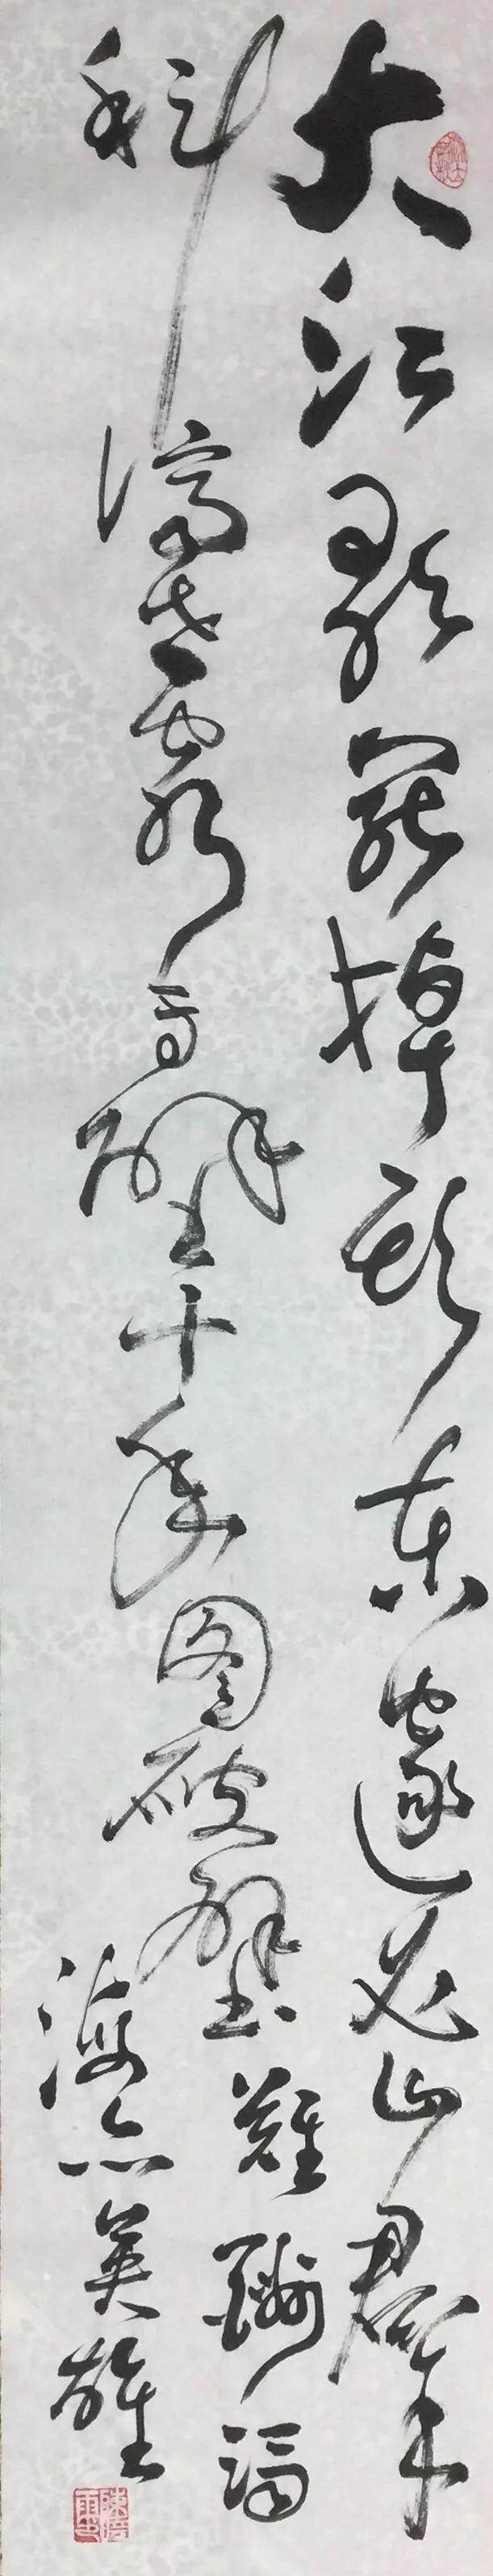 大江歌罷掉頭東邃密群
科濟世窮面壁十年图破壁難酬蹈
海亦英雄